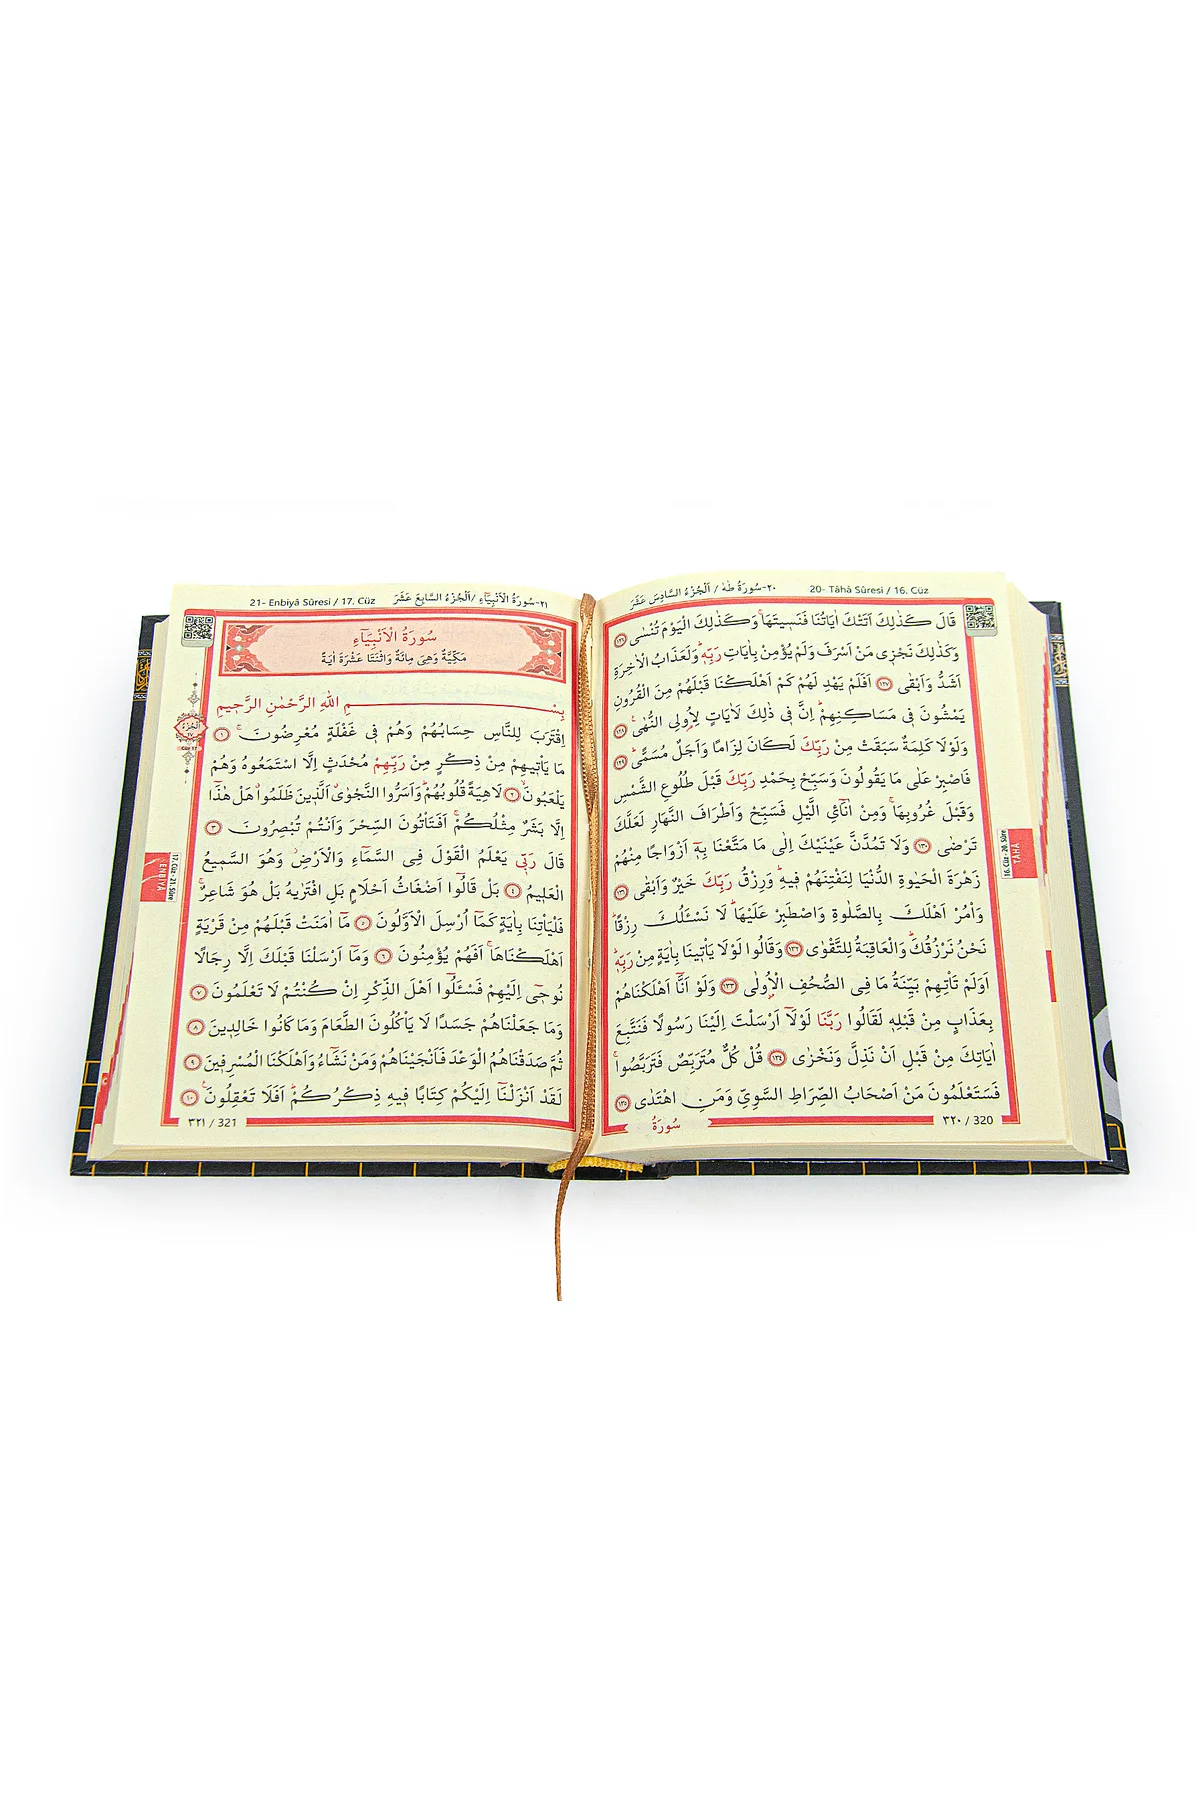 ٢٠-سُورَةُ طٰهٰ / اَلْجُزْءُ السَّادِسَ عَشَرَ 20- Tâhâ Sûresi / 16. Cüz
قَالَ كَذٰلِكَ اَتَتْكَ اٰيَاتُنَا فَنَسٖيتَهَاۚ وَكَذٰلِكَ الْيَوْمَ تُنْسٰى ﴿١٢٦﴾
وَكَذٰلِكَ نَجْزٖى مَنْ اَسْرَفَ وَلَمْ يُؤْمِنْ بِاٰيَاتِ رَبِّهٖؕ وَلَعَذَابُ الْاٰخِرَةِ
اَشَدُّ وَاَبْقٰى ﴿١٢٧﴾ اَفَلَمْ يَهْدِ لَهُمْ كَمْ اَهْلَكْنَا قَبْلَهُمْ مِنَ الْقُرُونِ
يَمْشُونَ فٖى مَسَاكِنِهِمْؕ اِنَّ فٖى ذٰلِكَ لَاٰيَاتٍ لِاُولِى النُّهٰىۚ ﴿١٢٨﴾
وَلَوْلَا كَلِمَةٌ سَبَقَتْ مِنْ رَبِّكَ لَكَانَ لِزَامًا وَاَجَلٌ مُسَمًّىؕ ﴿١٢٩﴾
فَاصْبِرْ عَلٰى مَا يَقُولُونَ وَسَبِّحْ بِحَمْدِ رَبِّكَ قَبْلَ طُلُوعِ الشَّمْسِ
وَقَبْلَ غُرُوبِهَاۚ وَمِنْ اٰنَآئِ الَّيْلِ فَسَبِّحْ وَاَطْرَافَ النَّهَارِ لَعَلَّكَ
تَرْضٰى ﴿١٣٠﴾ وَلَا تَمُدَّنَّ عَيْنَيْكَ اِلٰى مَا مَتَّعْنَا بِهٖٓ اَزْوَاجًا مِنْهُمْ
زَهْرَةَ الْحَيٰوةِ الدُّنْيَا لِنَفْتِنَهُمْ فٖيهِؕ وَرِزْقُ رَبِّكَ خَيْرٌ وَاَبْقٰى ﴿١٣١﴾
وَاْمُرْ اَهْلَكَ بِالصَّلٰوةِ وَاصْطَبِرْ عَلَيْهَاؕ لَا نَسْـَٔلُكَ رِزْقًاؕ
نَحْنُ نَرْزُقُكَؕ وَالْعَاقِبَةُ لِلتَّقْوٰى ﴿١٣٢﴾ وَقَالُوا لَوْلَا يَاْتٖينَا بِاٰيَةٍ مِنْ رَبِّهٖؕ
اَوَلَمْ تَاْتِهِمْ بَيِّنَةُ مَا فِى الصُّحُفِ الْاُولٰى ﴿١٣٣﴾ وَلَوْ اَنَّٓا اَهْلَكْنَاهُمْ
بِعَذَابٍ مِنْ قَبْلِهٖ لَقَالُوا رَبَّنَا لَوْلَٓا اَرْسَلْتَ اِلَيْنَا رَسُولًا فَنَتَّبِعَ
اٰيَاتِكَ مِنْ قَبْلِ اَنْ نَذِلَّ وَنَخْزٰى ﴿١٣٤﴾ قُلْ كُلٌّ مُتَرَبِّصٌ فَتَرَبَّصُواۚ
فَسَتَعْلَمُونَ مَنْ اَصْحَابُ الصِّرَاطِ السَّوِيِّ وَمَنِ اهْتَدٰى ﴿١٣٥﴾
٣٢٠ / 320
سُورَةُ
16. Cüz - 20. Sûre
TÂHÂ
21- Enbiyâ Sûresi / 17. Cüz ٢١-سُورَةُ الْاَنْبِيَٓاءِ /اَلْجُزْءُ السَّابِعَ عَشَرَ
سُورَةُ الْاَنْبِيَٓاءِ
مَكِّيَّةٌ وَهِىَ مِائَةٌ وَاثْنَتَا عَشْرَةَ اٰيَةً
بِسْمِ اللّٰهِ الرَّحْمٰنِ الرَّحٖيمِ
اِقْتَرَبَ لِلنَّاسِ حِسَابُهُمْ وَهُمْ فٖى غَفْلَةٍ مُعْرِضُونَۚ ﴿١﴾
مَا يَاْتٖيهِمْ مِنْ ذِكْرٍ مِنْ رَبِّهِمْ مُحْدَثٍ اِلَّا اسْتَمَعُوهُ وَهُمْ
يَلْعَبُونَۙ ﴿٢﴾ لَاهِيَةً قُلُوبُهُمْؕ وَاَسَرُّوا النَّجْوٰىۗ اَلَّذٖينَ ظَلَمُواۗ هَلْ هٰذَٓا
اِلَّا بَشَرٌ مِثْلُكُمْۚ اَفَتَاْتُونَ السِّحْرَ وَاَنْتُمْ تُبْصِرُونَ ﴿٣﴾
قَالَ رَبّٖى يَعْلَمُ الْقَوْلَ فِى السَّمَٓاءِ وَالْاَرْضِؗ وَهُوَ السَّمٖيعُ
الْعَلٖيمُ ﴿٤﴾ بَلْ قَالُٓوا اَضْغَاثُ اَحْلَامٍ بَلِ افْتَرٰيهُ بَلْ هُوَ شَاعِرٌۚ
فَلْيَاْتِنَا بِاٰيَةٍ كَمَٓا اُرْسِلَ الْاَوَّلُونَ ﴿٥﴾ مَٓا اٰمَنَتْ قَبْلَهُمْ مِنْ قَرْيَةٍ
اَهْلَكْنَاهَاۚ اَفَهُمْ يُؤْمِنُونَ ﴿٦﴾ وَمَٓا اَرْسَلْنَا قَبْلَكَ اِلَّا رِجَالًا
نُوحٖٓى اِلَيْهِمْ فَسْـَٔلُٓوا اَهْلَ الذِّكْرِ اِنْ كُنْتُمْ لَا تَعْلَمُونَ ﴿٧﴾
وَمَا جَعَلْنَاهُمْ جَسَدًا لَا يَاْكُلُونَ الطَّعَامَ وَمَا كَانُوا خَالِدٖينَ ﴿٨﴾
ثُمَّ صَدَقْنَاهُمُ الْوَعْدَ فَاَنْجَيْنَاهُمْ وَمَنْ نَشَٓاءُ وَاَهْلَكْنَا الْمُسْرِفٖينَ ﴿٩﴾
لَقَدْ اَنْزَلْنَٓا اِلَيْكُمْ كِتَابًا فٖيهِ ذِكْرُكُمْؕ اَفَلَا تَعْقِلُونَۚ ﴿١٠﴾
٣٢١ / 321
اَلْجُزْءُ
١٧
Cüz 17
17. Cüz - 21. Sûre
ENBİYÂ